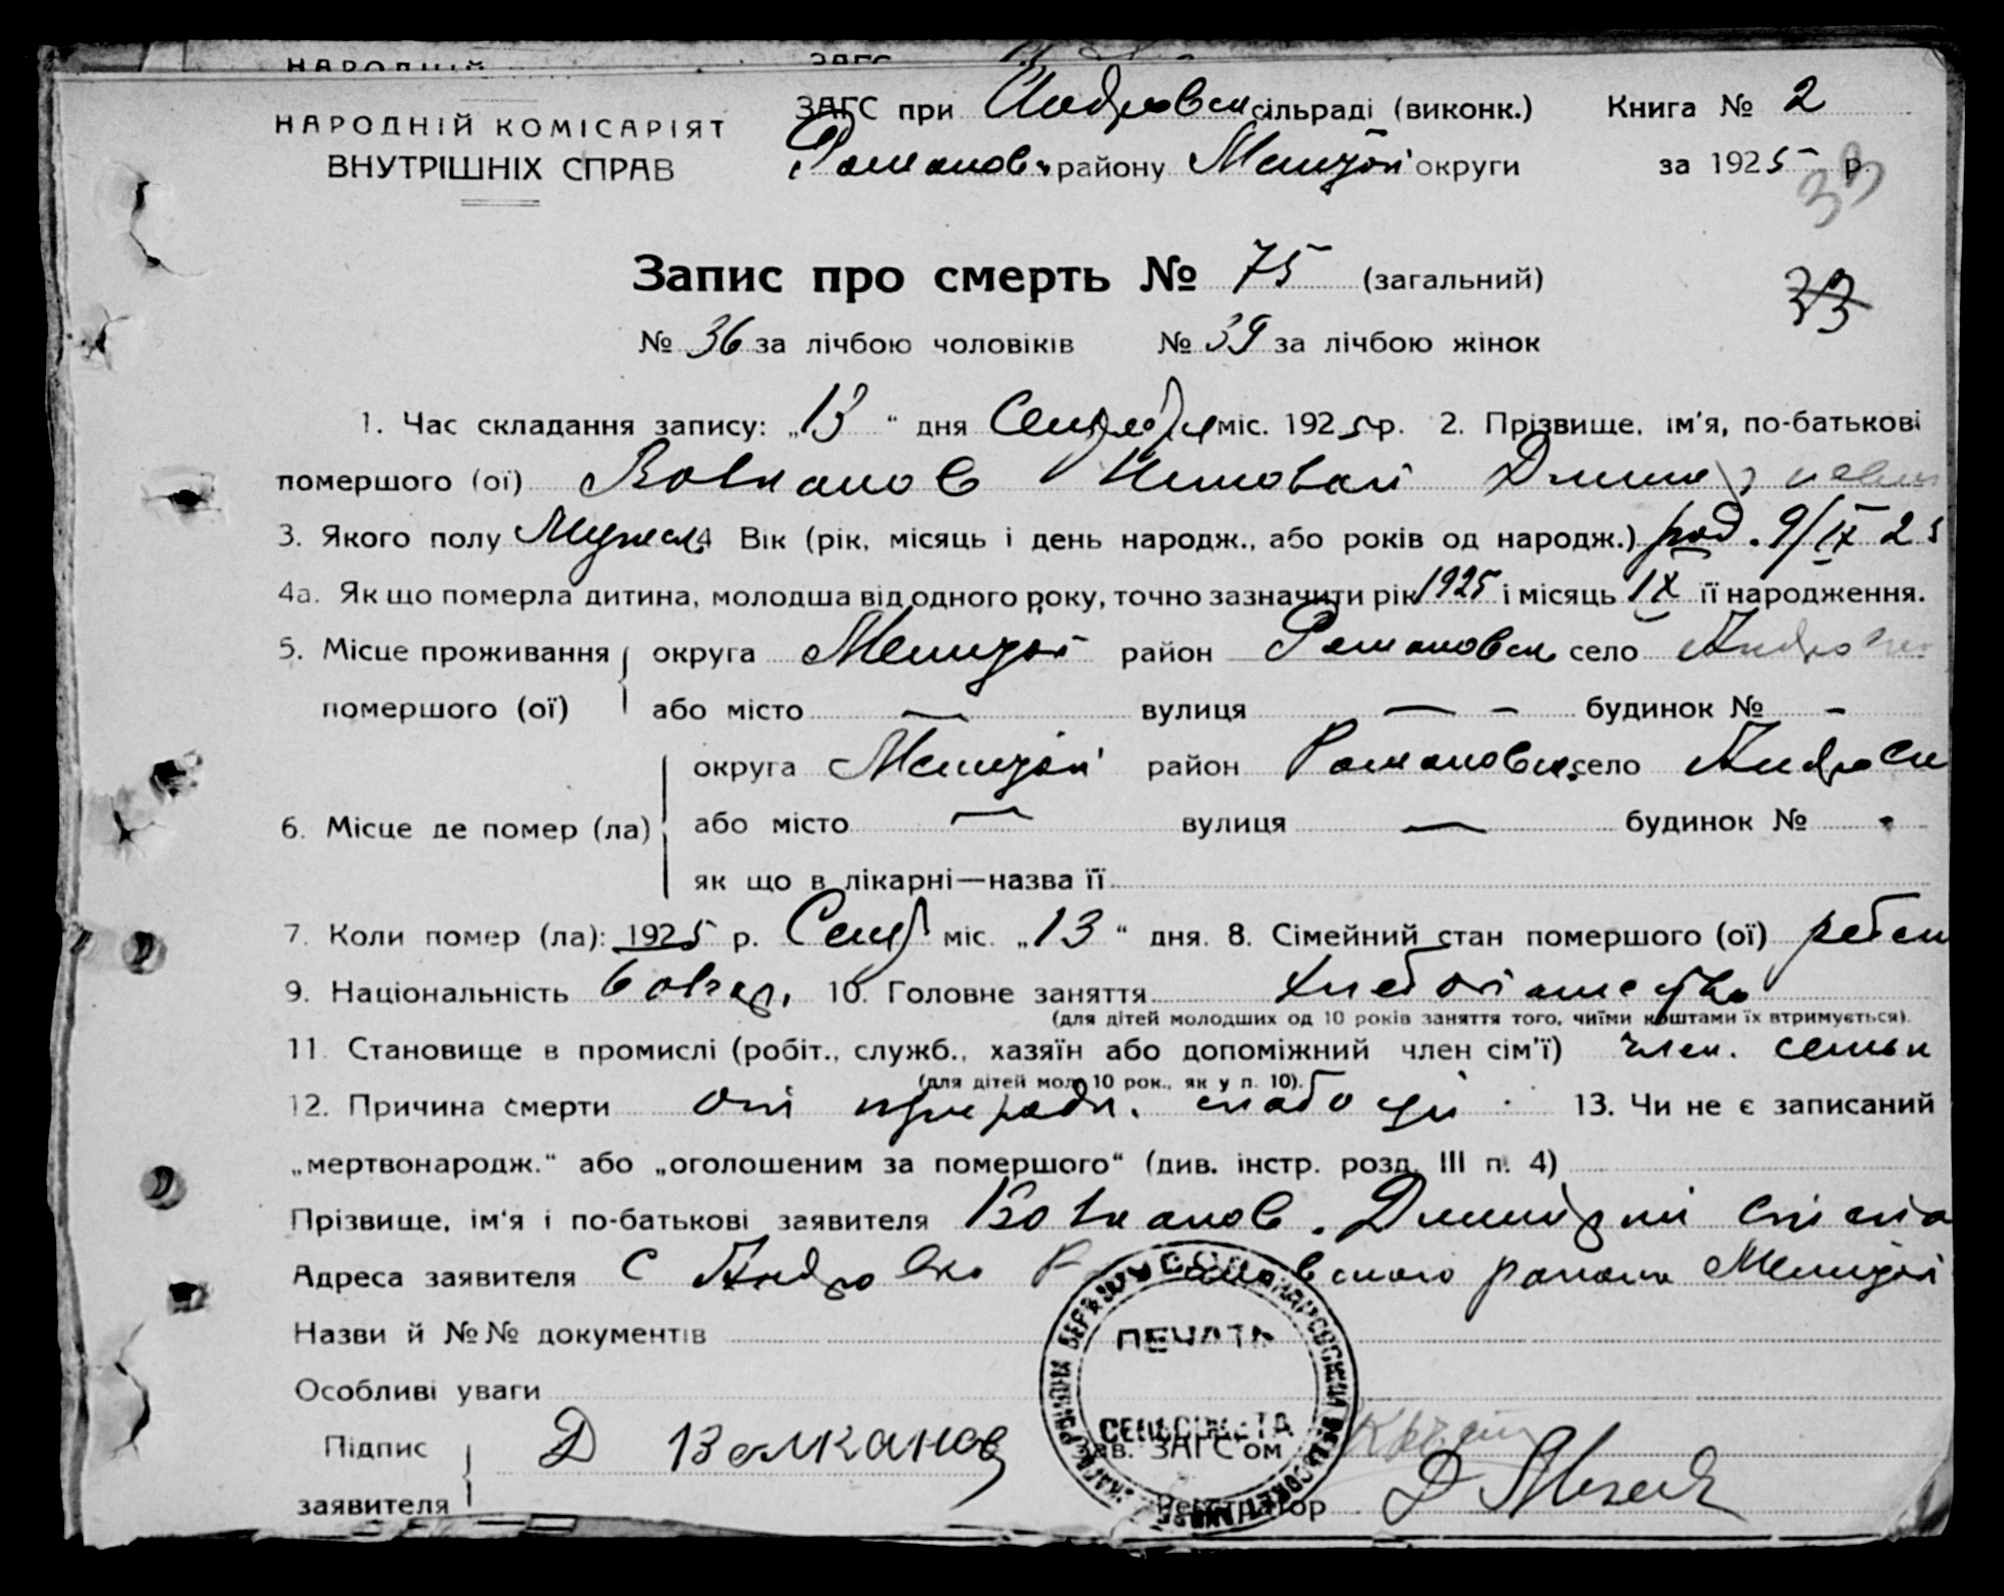 НАРОДНІЙ КОМІСАРІЯТ
ВНУТРІШНІХ СПРАВ
ЗАГС при Андровск сільраді (виконк.)
Романовск району Мелитоп округи
Книга № 2
за 1925 р.
33
33
Запис про смерть № 75 (загальний)
№ 36 за лічбою чоловіків № 39 за лічбою жінок
1. Час складання запису: „13“ дня Сентября міс. 1925 р. 2. Прізвище, ім'я, по-батькові
помершого (ої) Волканов Николай
3. Якого полу Мужск 4 Вік (рік, місяць і день народж., або років од народж.) род. 9/IX 25
4а. Як що померла дитина, молодша від одного року, точно зазначити рік 1925 і місяць IX її народження.
5. Місце проживання помершого (ої) округа Мелитоп район Романовск село Андровка
або місто — вулиця — - будинок № -
6. Місце де помер (ла) округа Мелитоп район Романовск село Андровк
або місто — вулиця — будинок №
як що в лікарні—назва її
7. Коли помер (ла): 1925 р. Сент міс. „13“ дня. 8. Сімейний стан помершого (ої) ребен
9. Національність болгар. 10. Головне заняття хлебопашество
(для дітей молодших од 10 років заняття того, чиїми коштами їх втримується).
11. Становище в промислі (робіт., служб., хазяїн або допоміжний член сім'ї) член. семьи
(для дітей мол. 10 рок., як у п. 10).
12. Причина смерти от природн. слабости 13. Чи не є записаний
„мертвонародж.“ або „оголошеним за помершого“ (див. інстр. розд. III п. 4)
Прізвище, ім'я і по-батькові заявителя Волканов Дмитрий
Адреса заявителя с Андровка Романовского района Мелитоп
Назви й №№ документів
Особливі уваги
Підпис заявителя Д Волканов
Зав. ЗАГС'ом
Регстратор Д
ПЕЧАТЬ
СЕЛЬСОВЕТА